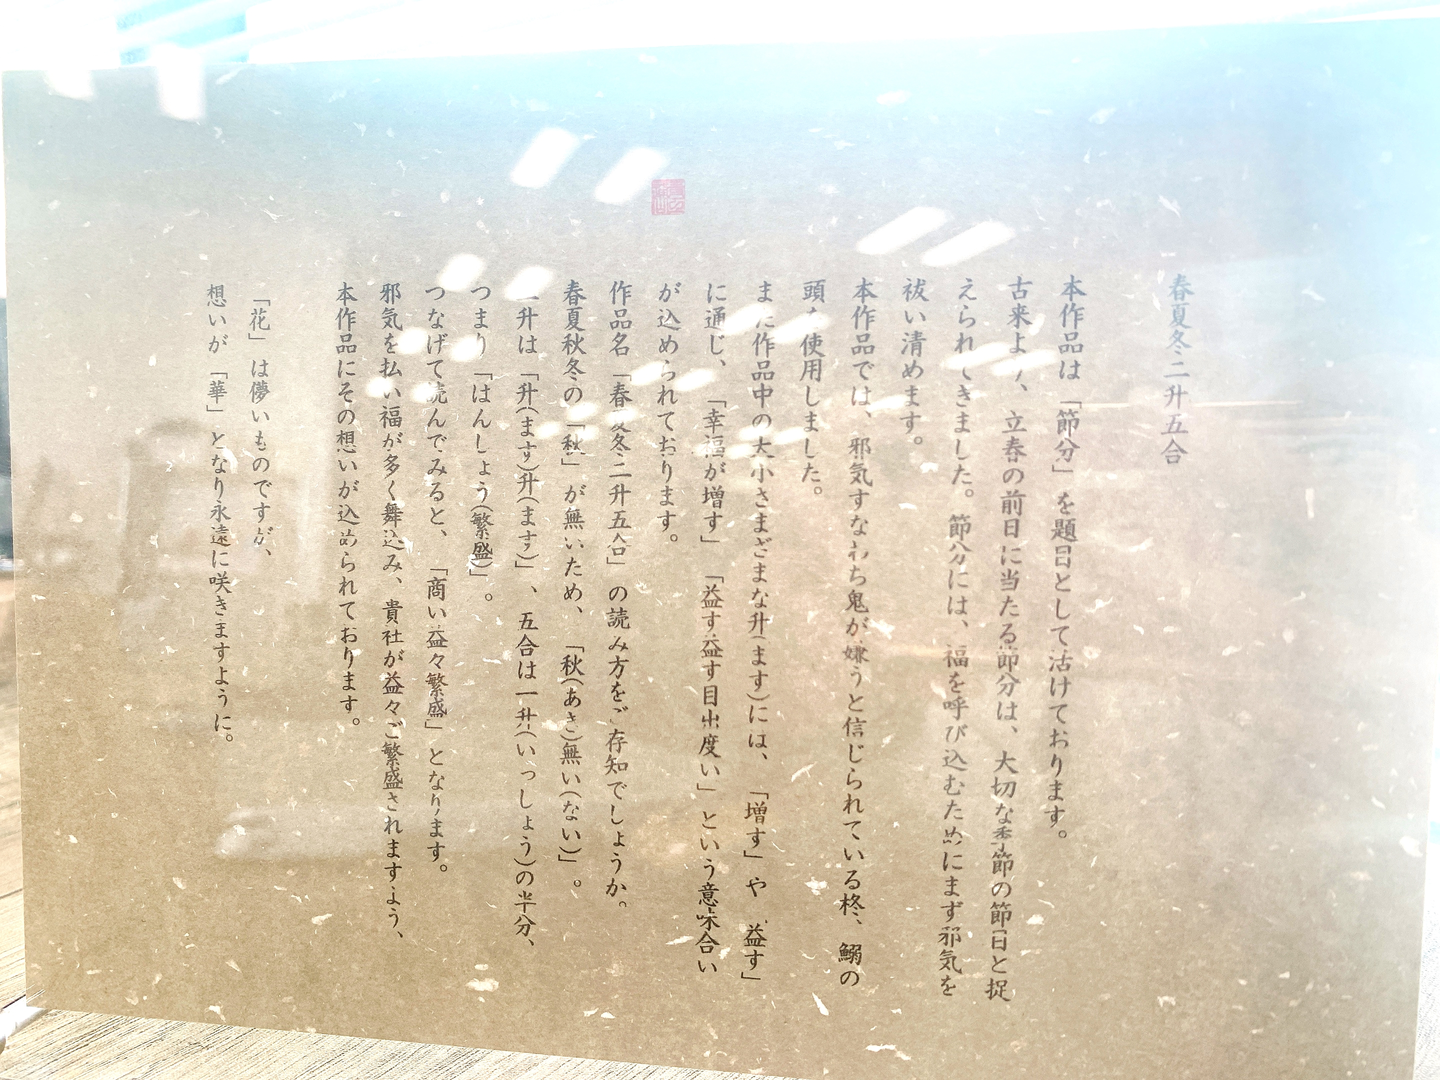 春夏冬二升五合
本作品は「節分」を題目として活けております。
古来より、立春の前日に当たる節分は、大切な季節の節目と捉
えられてきました。節分には、福を呼び込むためにまず邪気を
祓い清めます。
本作品では、邪気すなわち鬼が嫌うと信じられている柊、鰯の
頭を使用しました。
また作品中の大小さまざまな升(ます)には、「増す」や「益す」
に通じ、「幸福が増す」「益す益す目出度い」という意味合い
が込められております。
作品名「春夏冬二升五合」の読み方をご存知でしょうか。
春夏秋冬の「秋」が無いため、「秋(あき)無い(ない)」。
二升は「升(ます)升(ます)」、五合は一升(いっしょう)の半分、
つまり「はんしょう(繁盛)」。
つなげて読んでみると、「商い益々繁盛」となります。
邪気を払い福が多く舞込み、貴社が益々ご繁盛されますよう、
本作品にその想いが込められております。
「花」は儚いものですが、
想いが「華」となり永遠に咲きますように。